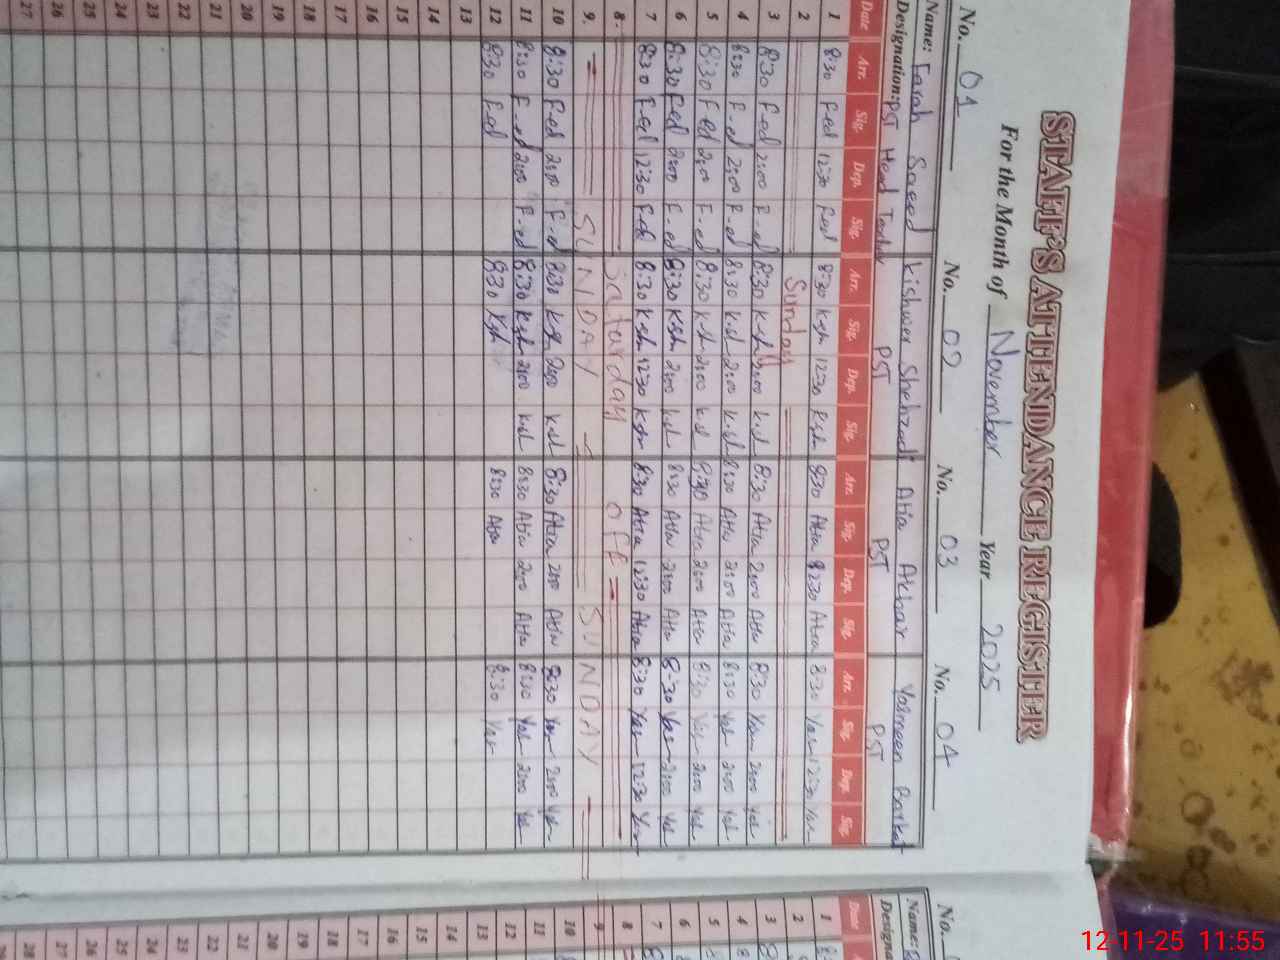 STAFF'S ATTENDANCE REGISTER
For the Month of November Year 2025
No. 01 No. 02 No. 03 No. 04
Name: Farah Saeed Kishwer Shehzadi Atia Akbar Yasmeen Barkat
Designation: PST Head Teacher PST PST PST
Date Arr. Sig. Dep. Sig. Arr. Sig. Dep. Sig. Arr. Sig. Dep. Sig. Arr. Sig. Dep. Sig.
1 8:30 F-ed 12:30 F-ed 8:30 K-sh 12:30 K-sh 8:30 Atia 12:30 Atia 8:30 Yas 12:30 Yas
2 Sunday
3 8:30 F-ed 2:00 F-ed 8:30 K-sh 2:00 K-sh 8:30 Atia 2:00 Atia 8:30 Yas 2:00 Yas
4 8:30 F-ed 2:00 F-ed 8:30 K-sh 2:00 K-sh 8:30 Atia 2:00 Atia 8:30 Yas 2:00 Yas
5 8:30 F-ed 2:00 F-ed 8:30 K-sh 2:00 K-sh 8:30 Atia 2:00 Atia 8:30 Yas 2:00 Yas
6 8:30 F-ed 2:00 F-ed 8:30 K-sh 2:00 K-sh 8:30 Atia 2:00 Atia 8:30 Yas 2:00 Yas
7 8:30 F-ed 12:30 F-ed 8:30 K-sh 12:30 K-sh 8:30 Atia 12:30 Atia 8:30 Yas 12:30 Yas
8. Saturday OFF
9. SUNDAY SUNDAY
10 8:30 F-ed 2:00 F-ed 8:30 K-sh 2:00 K-sh 8:30 Atia 2:00 Atia 8:30 Yas 2:00 Yas
11 8:30 F-ed 2:00 F-ed 8:30 K-sh 2:00 K-sh 8:30 Atia 2:00 Atia 8:30 Yas 2:00 Yas
12 8:30 F-ed 8:30 K-sh 8:30 Atia 8:30 Yas
13
14
15
16
17
18
19
20
21
22
23
24
25
26
27
No.
Name:
Designa
Date
1
2
3
4
5
6
7
8
9
10
11
12
13
14
15
16
17
18
19
20
21
22
23
24
25
26
27
28
12-11-25 11:55